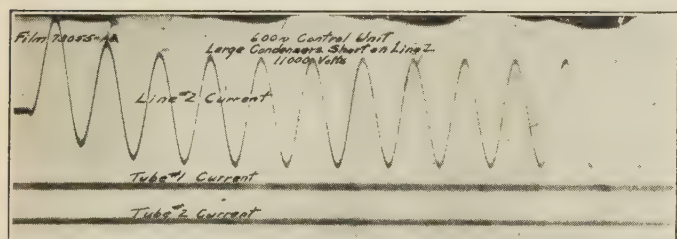 600~ Control Unit
Large Condensers. Short on Line 2
11000 Volts
Line #2 Current
Tube #1 Current
Tube #2 Current